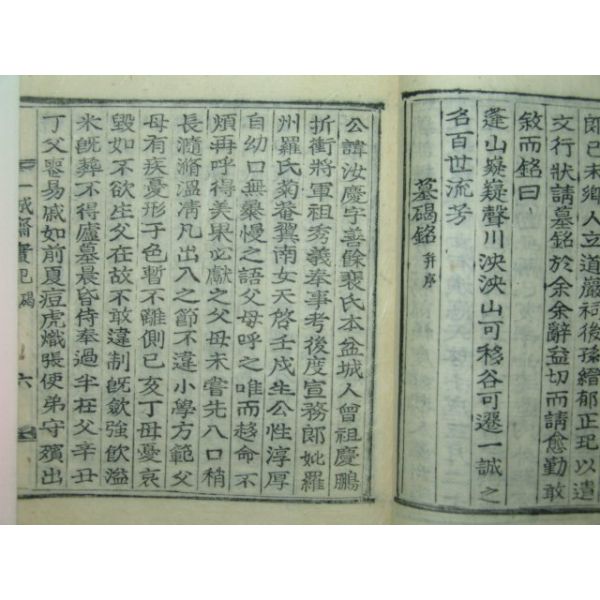 郎己未鄉人立道巖祠後孫縉郁正玘以遺
文行狀請墓銘於余余辭益切而請愈勤敢
敘而銘曰
蓬山嶷嶷聲川泱泱山可移谷可遷一誠之
名百世流芳
墓碣銘 幷序
公諱汝慶字善餘裴氏本盆城人曾祖慶鵬
折衝將軍祖秀義奉事考後度宣務郎妣羅
州羅氏菊菴翼南女天啓壬戌生公性淳厚
自幼口無暴慢之語父母呼之唯而移命不
煩再呼得美果必獻之父母未嘗先入口稍
長瀡滫溫凊凡出入之節不違小學方範父
母有疾憂形于色暫不離側己亥丁母憂哀
毀如不欲生父在故不敢違制旣歛強飮溢
米旣葬不得廬墓晨昏侍奉過半在父辛丑
丁父喪易戚如前夏痘虎熾張使弟守殯出
一誠齋實紀 碣 六